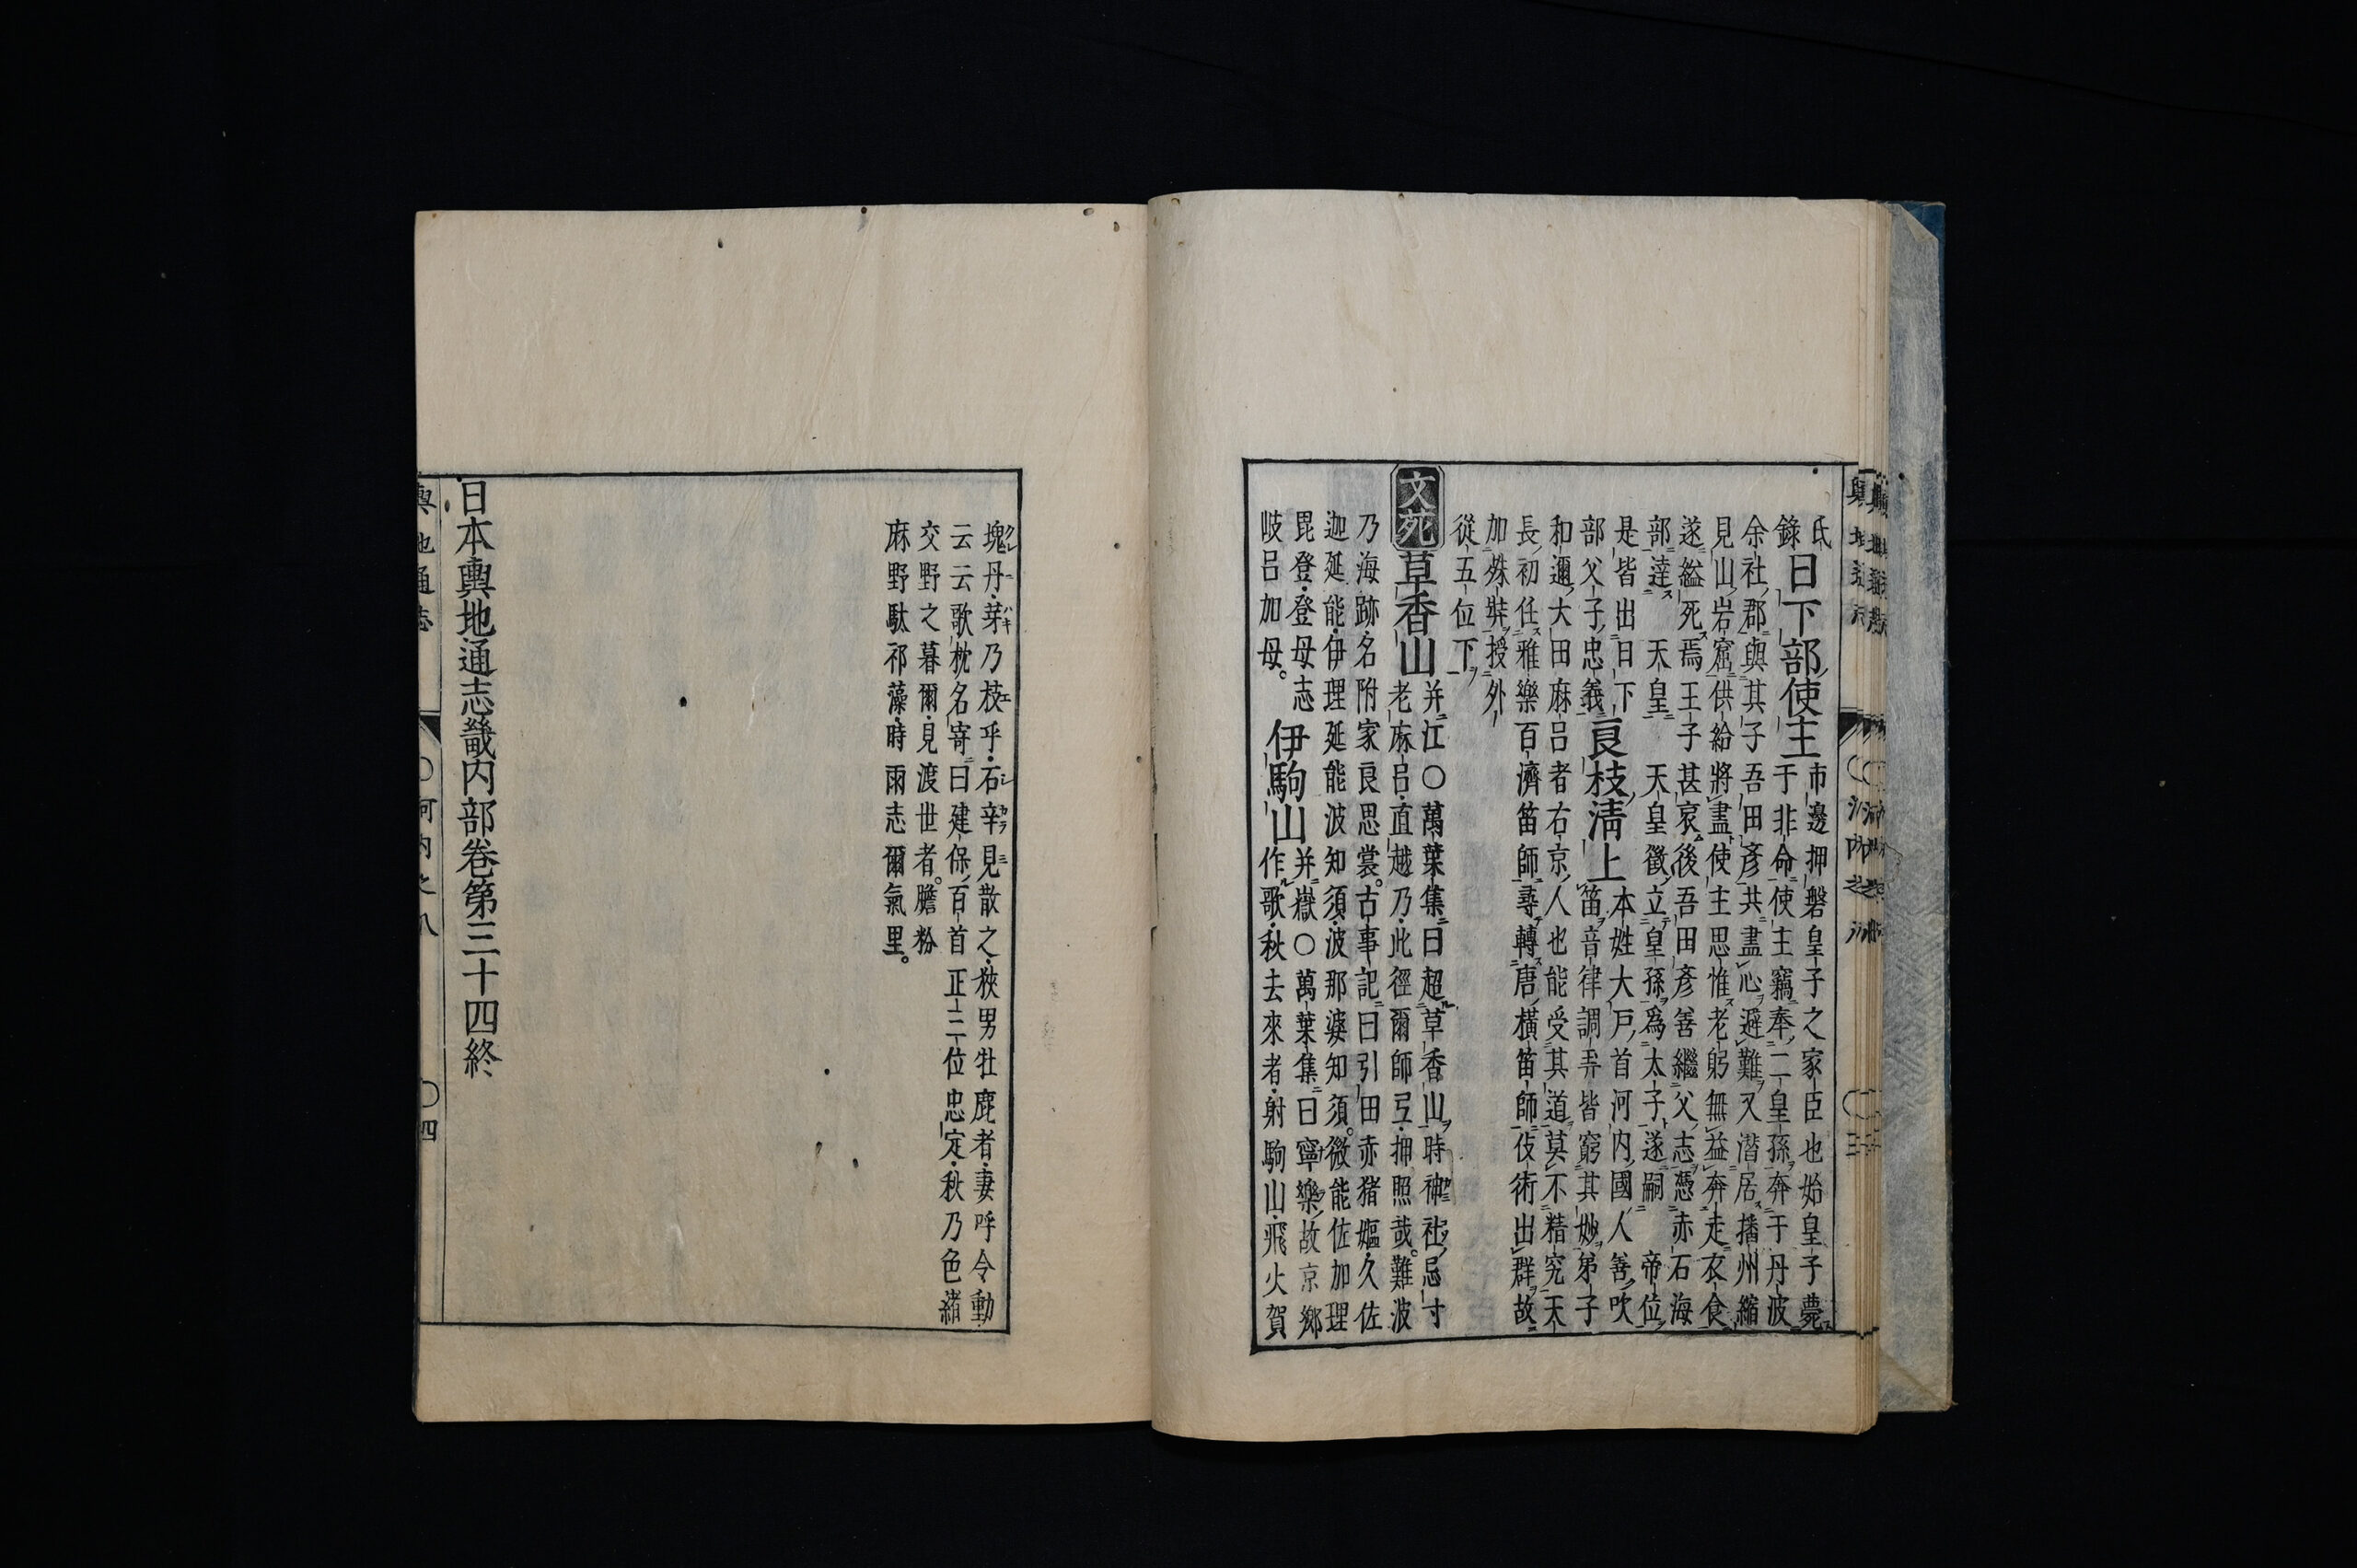 氏
錄日下部使主市邊押磐皇子之家臣也始皇子薨
于非命使主竊奉二皇孫奔于丹波
余社郡與其子吾田彥共盡心避難又潜居播州縮
見山岩窟供給將盡使主思惟老躬無益奔走衣食
遂縊死焉王子甚哀後吾田彥善繼父志憑赤石海
部達 天皇 天皇徵立皇孫爲太子遂嗣 帝位
是皆出日下
部父子忠義良枝淸上本姓大戸首河内國人善吹
笛音律調弄皆窮其妙弟子
和邇大田麻呂者右京人也能受其道莫不精究天
長初任雅樂百濟笛師尋轉唐橫笛師伎術出群故
加殊奘授外
從五位下
文苑草香山并江○萬葉集曰超草香山時神社忌寸
老麻呂直越乃此徑爾師弖押照哉難波
乃海跡名附家良思裳古事記曰引田赤猪嫗久佐
迦延能伊理延能波知須波那婆知須微能佐加理
毘登登母志
岐呂加母伊駒山并嶽○萬葉集曰寧樂故京鄉
作歌秋去來者射駒山飛火賀
塊丹芽乃枝乎石辛見散之狹男牡鹿者妻呼令動
云云歌枕名寄曰建保百首正三位忠定秋乃色緒
交野之暮爾見渡世者膽粉
麻野駄祁藻時雨志爾氣里
日本輿地通志畿内部卷第三十四終